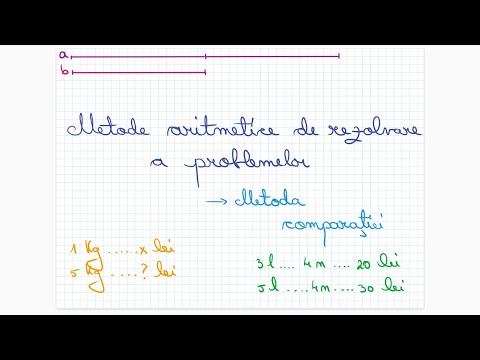 a
b
Metode aritmetice de rezolvare
a problemelor
→ Metoda
comparației
1 Kg ..... x lei
5 Kg .... ? lei
3 l .... 4 m .... 20 lei
5 l .... 4 m .... 30 lei